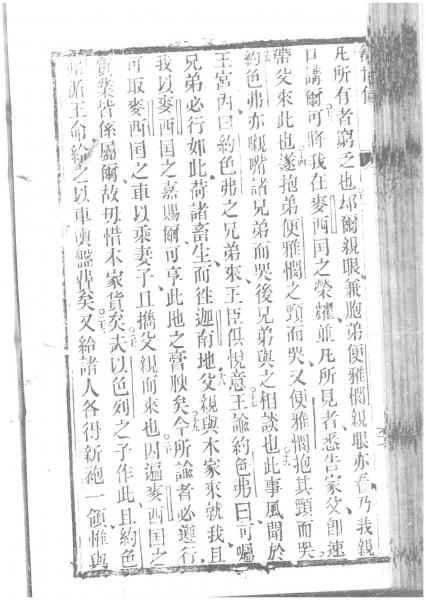 凡所有者窮乏也却爾親眼兼胞弟便雅憫親眼亦看乃我親
口講爾可將我在麥西国之榮耀並凡所見者悉告家父即速
帶父來此也遂抱弟便雅憫之頸而哭又便雅憫抱其頸而哭
約色弗亦親嘴諸兄弟而哭後兄弟與之相談也此事風聞於
王宮內曰約色弗之兄弟來王臣俱悅意王諭約色弗曰可囑
兄弟必行如此荷諸畜生而徃迦南地父親與本家來就我且
我以麥西国之嘉賜爾可享此地之膏腴矣今所諭者必遵行
可取麥西国之車以乘妻子且擕父親而來也因遍麥西国之
貨業皆係屬爾故毋惜本家貨矣夫以色列之子作此且約色
弗派王命給之以車輿盤 矣又給諸人各得新袍一領惟與